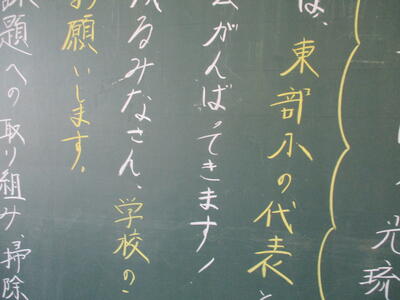 光琉
は、東部小の代表と
がんばってきます!
るみなさん、学校の
お願いします。
題への取り組み、掃除